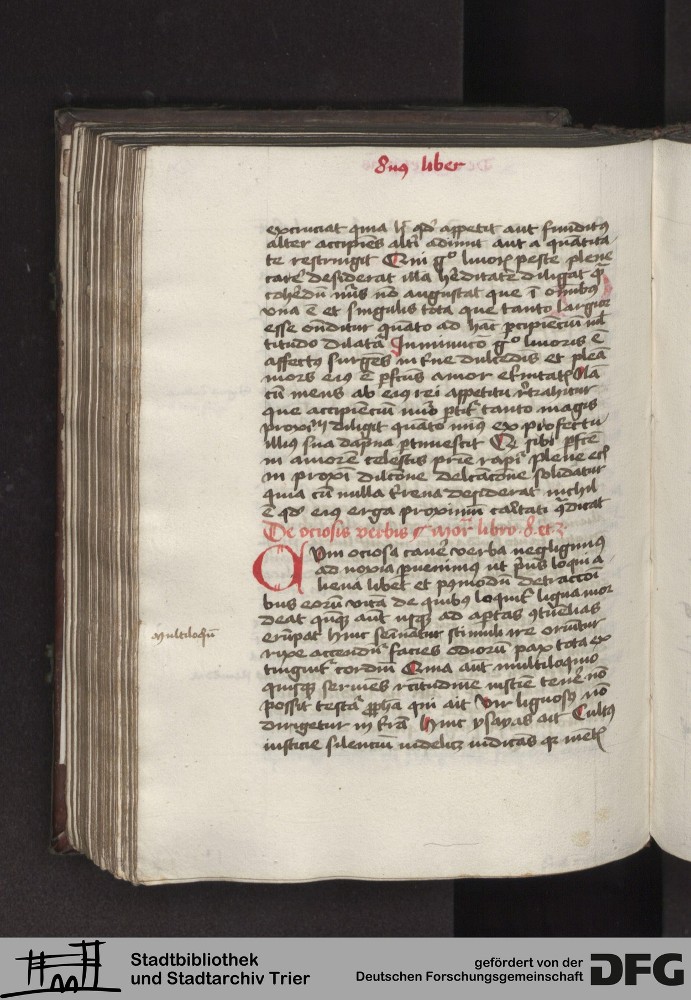 8us liber
excruciat quia hoc quod appetit aut funditus
alter accipiens alteri adimit aut a quantita
te restringit Qui ergo livoris peste plene
carere desiderat illam hereditatem diligat quam
coheredum numerus non angustat que in omnibus
una est et singulis tota que tanto largior
esse ostenditur quanto ad hanc percipiencium mul
titudo dilatatur Inminucio ergo livoris est
affectus surgens in interne dulcedinis et plena
mors eius est perfectus amor eternitatis Nam
cum mens ab eius rei appetitu retrahitur
que accipiencium numero partitur tanto magis
proximum diligit quanto minus ex profectu
illius sua dampna pertimescit Que si
in amorem celestis patrie rapitur plene eciam
in proximi dilectione solidatur
quia cum nulla terrena desiderat nichil
est quod eius erga proximum caritati contradicat
De ociosis verbis moralium libro 8 et 3
Dum ociosa cavere verba negligimus
ad noxia pervenimus ut prius loqui a
liena libet et postmodum detractioni
bus eorum vita de quibus loquitur lingua mor
deat quandoque autem usque ad apertas contumelias
erumpat hinc seminantur stimuli ire oriuntur
rixe accenduntur facies odiorum pax tota ex
tinguitur cordium Quia autem multiloquio
quisque serviens rectitudinem iusticie tenere non
possit testatur propheta qui ait Vir linguosus non
dirigetur in terra Hinc ysayas ait Cultus
iusticie silencium videlicet indicans quia
multiloquium
Stadtbibliothek
und Stadtarchiv Trier
gefördert von der
Deutschen Forschungsgemeinschaft
DFG